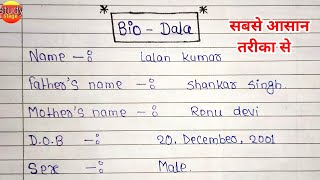 Study Stage
Bio - Data
सबसे आसान
तरीका से
Name -: lalan kumar
Father's name -: shankar singh.
Mother's name -: Renu devi
D.O.B -: 20, December, 2001
Sex -: Male.